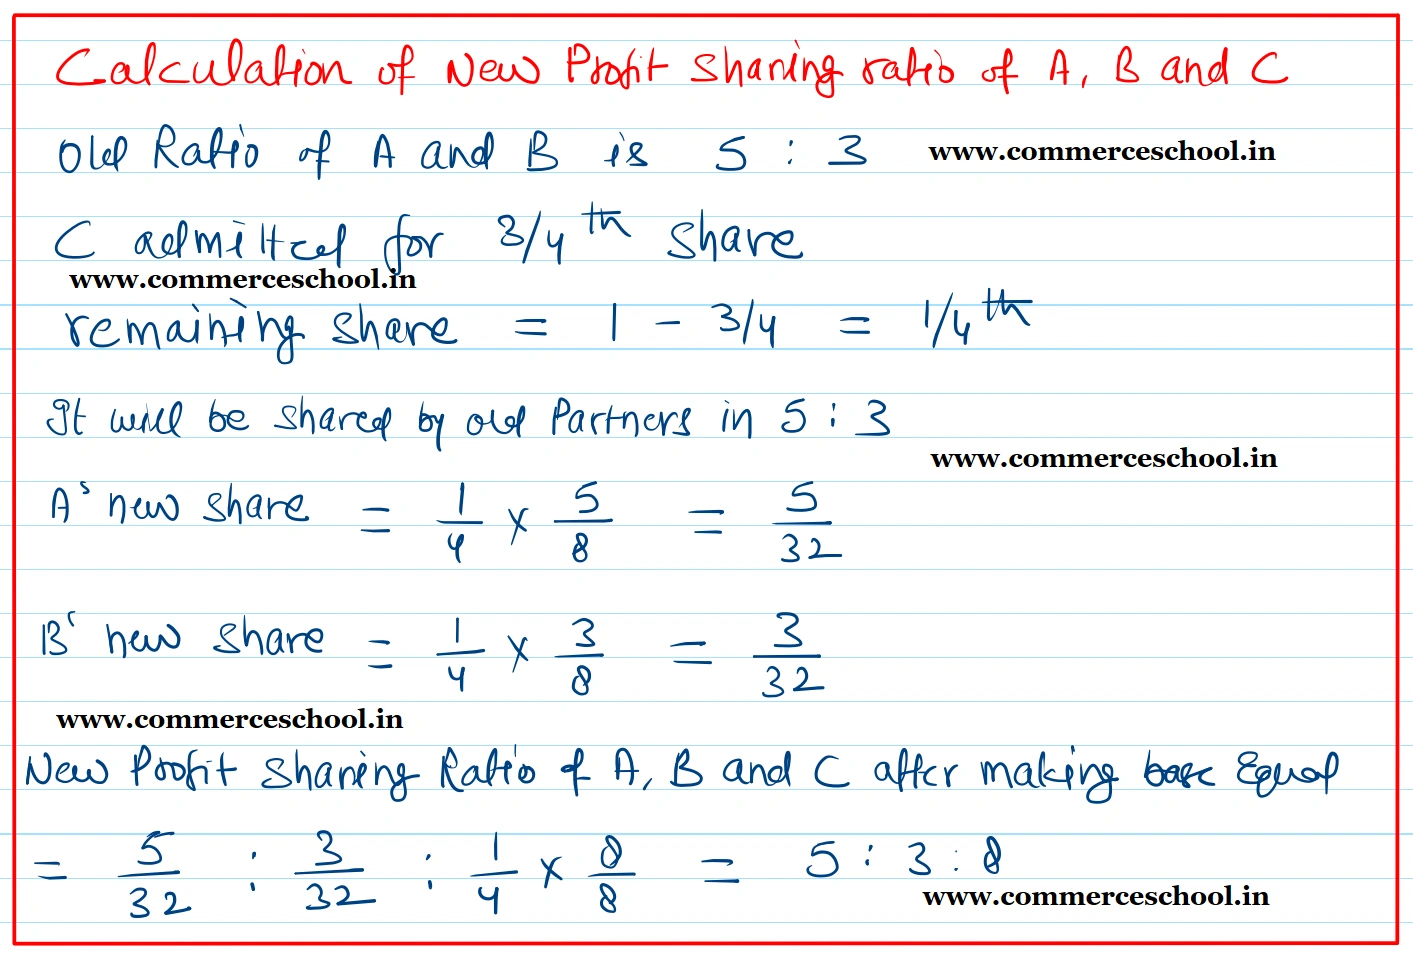 Calculation of New Profit Sharing ratio of A, B and C
Old Ratio of A and B is 5 : 3
www.commerceschool.in
C admitted for 3/4th share
www.commerceschool.in
remaining share = 1 - 3/4 = 1/4th
It will be shared by old Partners in 5 : 3
www.commerceschool.in
A's new share = 1/4 × 5/8 = 5/32
B's new share = 1/4 × 3/8 = 3/32
www.commerceschool.in
New Profit Sharing Ratio of A, B and C after making base Equal
= 5/32 : 3/32 : 1/4 × 8/8 = 5 : 3 : 8
www.commerceschool.in